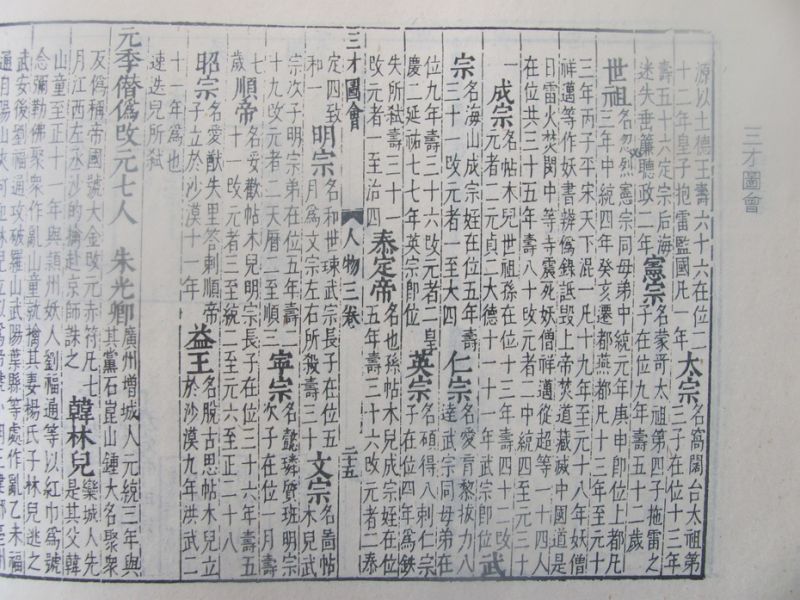 三才圖會
源以土德王壽六十六在位二
十二年皇子抱雷監國凡一年
太宗
名窩闊台太祖第
三子在位十三年
壽五十六定宗后海
迷失垂簾聽政二年
憲宗
名蒙哥太祖第四子拖雷之
子在位九年壽五十二歲
世祖
名忽烈憲宗同母弟中統元年庚申即位上都凡
三年中統四年癸亥遷都燕都凡十三年至元十
三年丙子平宋天下混一凡十九年至元十八年妖僧
祥邁等作妖書辨僞錄詆毀上帝焚道藏滅中國道是
日雷火焚閔中等寺震死妖僧祥邁從超等一十四人
在位共三十五年壽八十改元者二中統四至元三十
一
成宗
名帖木兒世祖孫在位十三年壽四十二改
元者二元貞二大德十一年武宗即位
武
宗
名海山成宗姪在位五年壽
三十一改元者一至大四
仁宗
名愛育黎拔力八
達武宗同母弟在
位九年壽三十六改元者二皇
慶二延祐七七年英宗即位
英宗
名碩得八刺仁宗
子在位四年為鉄
失所弒壽三十一
改元者一至治四
泰定帝
名也孫帖木兒成宗姪在位
五年壽三十六改元者二泰
三才圖會 人物三卷 二十五
定四致
和一
明宗
名和世㻋武宗長子在位五
月為文宗左右所殺壽三十
文宗
名啚帖
木兒武
宗次子明宗弟在位五年壽二
十九改元者二天曆二至順三
寧宗
名懿璘質班明宗
次子在位一月壽
七
歲
順帝
名妥歡帖木兒明宗長子在位三十六年壽五
十一改元者三至統二至元六至正二十八
昭宗
名愛猷失里荅剌順帝
子立於沙漠十一年
益王
名脫古思帖木兒立
於沙漠九年洪武二
十一年為也
速迭兒所弒
元季僭偽改元七人 朱光卿
廣州增城人元統三年與
其黨石崑山鍾大名聚衆
反偽稱帝國號大金改元赤符凡七
月江西左丞沙的擒赴京師誅之
韓林兒
欒城人先
是其父韓
山童至正十一年與頴州妖人劉福通等以紅巾為號
念彌勒佛聚衆作亂山童就擒其妻楊氏子林兒逃之
武安後劉福通攻破羅山武陽葉縣等處作亂乙未福